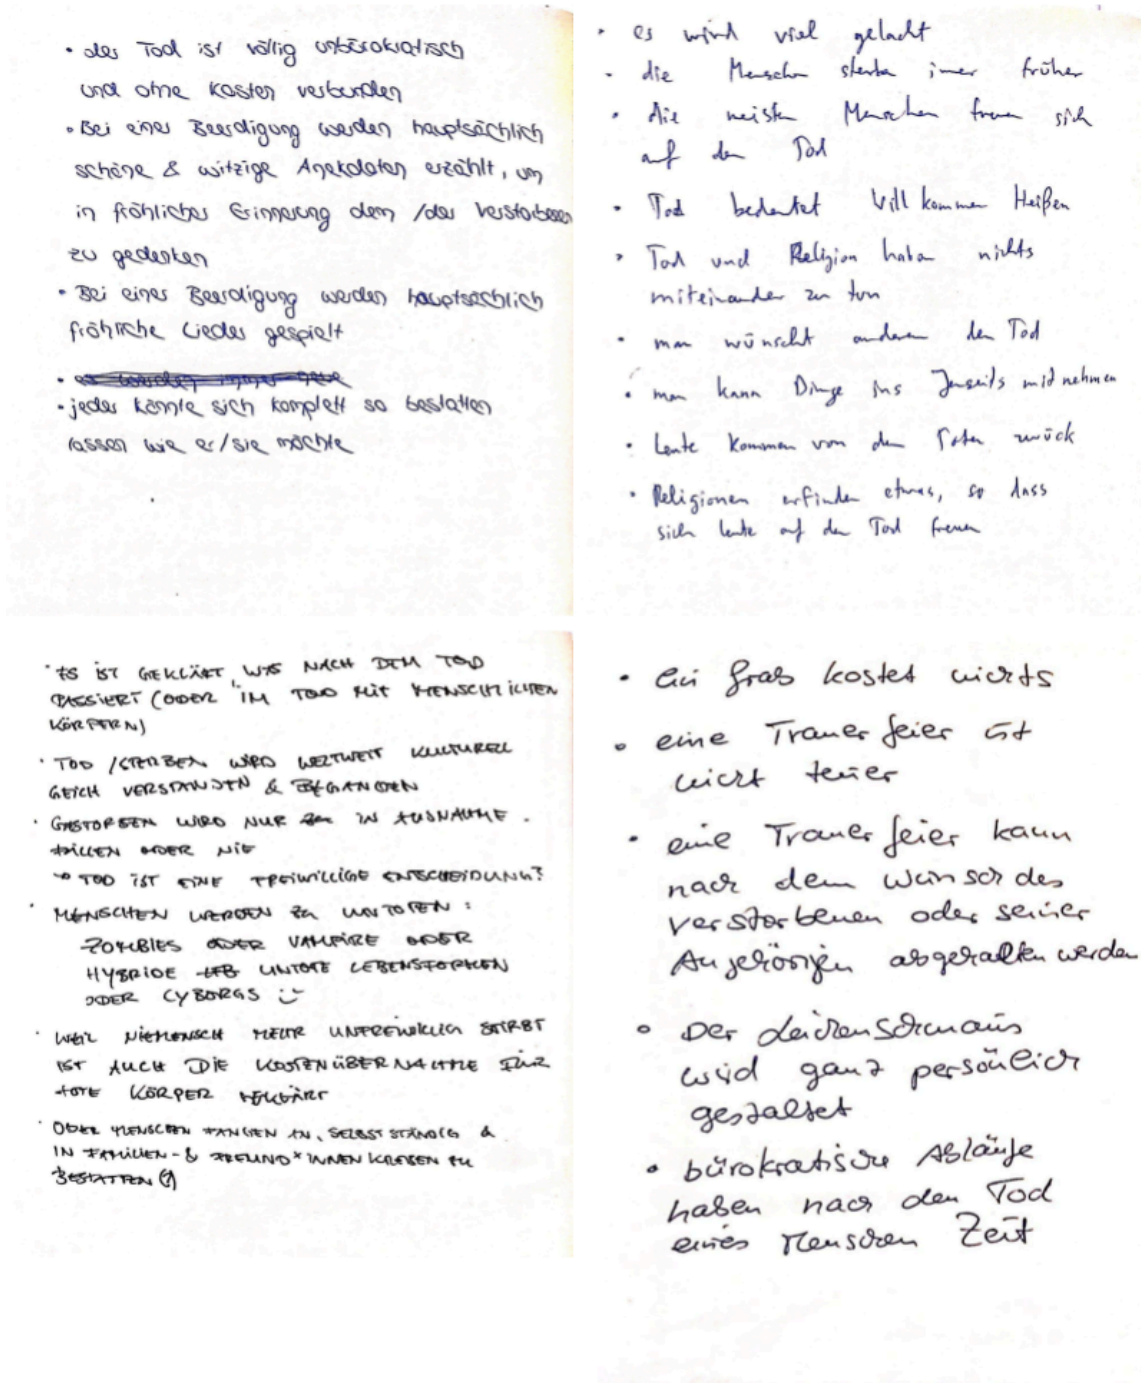 • der Tod ist völlig unbürokratisch
und ohne Kosten verbunden
• Bei einer Beerdigung werden hauptsächlich
schöne & witzige Anekdoten erzählt, um
in fröhlicher Erinnerung dem /der Verstorbenen
zu gedenken
• Bei einer Beerdigung werden hauptsächlich
fröhliche Lieder gespielt
• jeder könnte sich komplett so bestatten
lassen wie er/sie möchte
• es wird viel gelacht
• die Menschen sterben immer früher
• die meisten Menschen freuen sich
auf den Tod
• Tod bedeutet Willkommen Heißen
• Tod und Religion haben nichts
miteinander zu tun
• man wünscht anderen den Tod
• man kann Dinge ins Jenseits mitnehmen
• Leute kommen von den Toten zurück
• Religionen erfinden etwas, so dass
sich Leute auf den Tod freuen
• ES IST GEKLÄRT, WAS NACH DEM TOD
PASSIERT (ODER "IM TOD MIT MENSCHLICHEN
KÖRPERN)
• TOD /STERBEN WIRD WELTWEIT KULTURELL
GEICH VERSTANDEN & BEGANGEN
• GESTORBEN WIRD NUR IN AUSNAHME-
FÄLLEN ODER NIE
→ TOD IST EINE FREIWILLIGE ENTSCHEIDUNG?
• MENSCHEN WERDEN ZU UNTOTEN:
ZOMBIES ODER VAMPIRE ODER
HYBRIDE UNTOTE LEBENSFORMEN
ODER CYBORGS
• WEIL NIEMENSCH MEHR UNFREIWILLIG STIRBT
IST AUCH DIE KOSTENÜBERNAHME FÜR
TOTE KÖRPER GEKLÄRT
• ODER MENSCHEN FANGEN AN, SELBST STÄNDIG &
IN FAMILIEN- & FREUND*INNENKREISEN ZU
BESTATTEN (?)
• ein Grab kostet nichts
• eine Trauerfeier ist
nicht teuer
• eine Trauerfeier kann
nach dem Wunsch des
Verstorbenen oder seiner
Angehörigen abgehalten werden
• Der Leichenschmaus
wird ganz persönlich
gestaltet
• bürokratische Abläufe
haben nach den Tod
eines Menschen Zeit